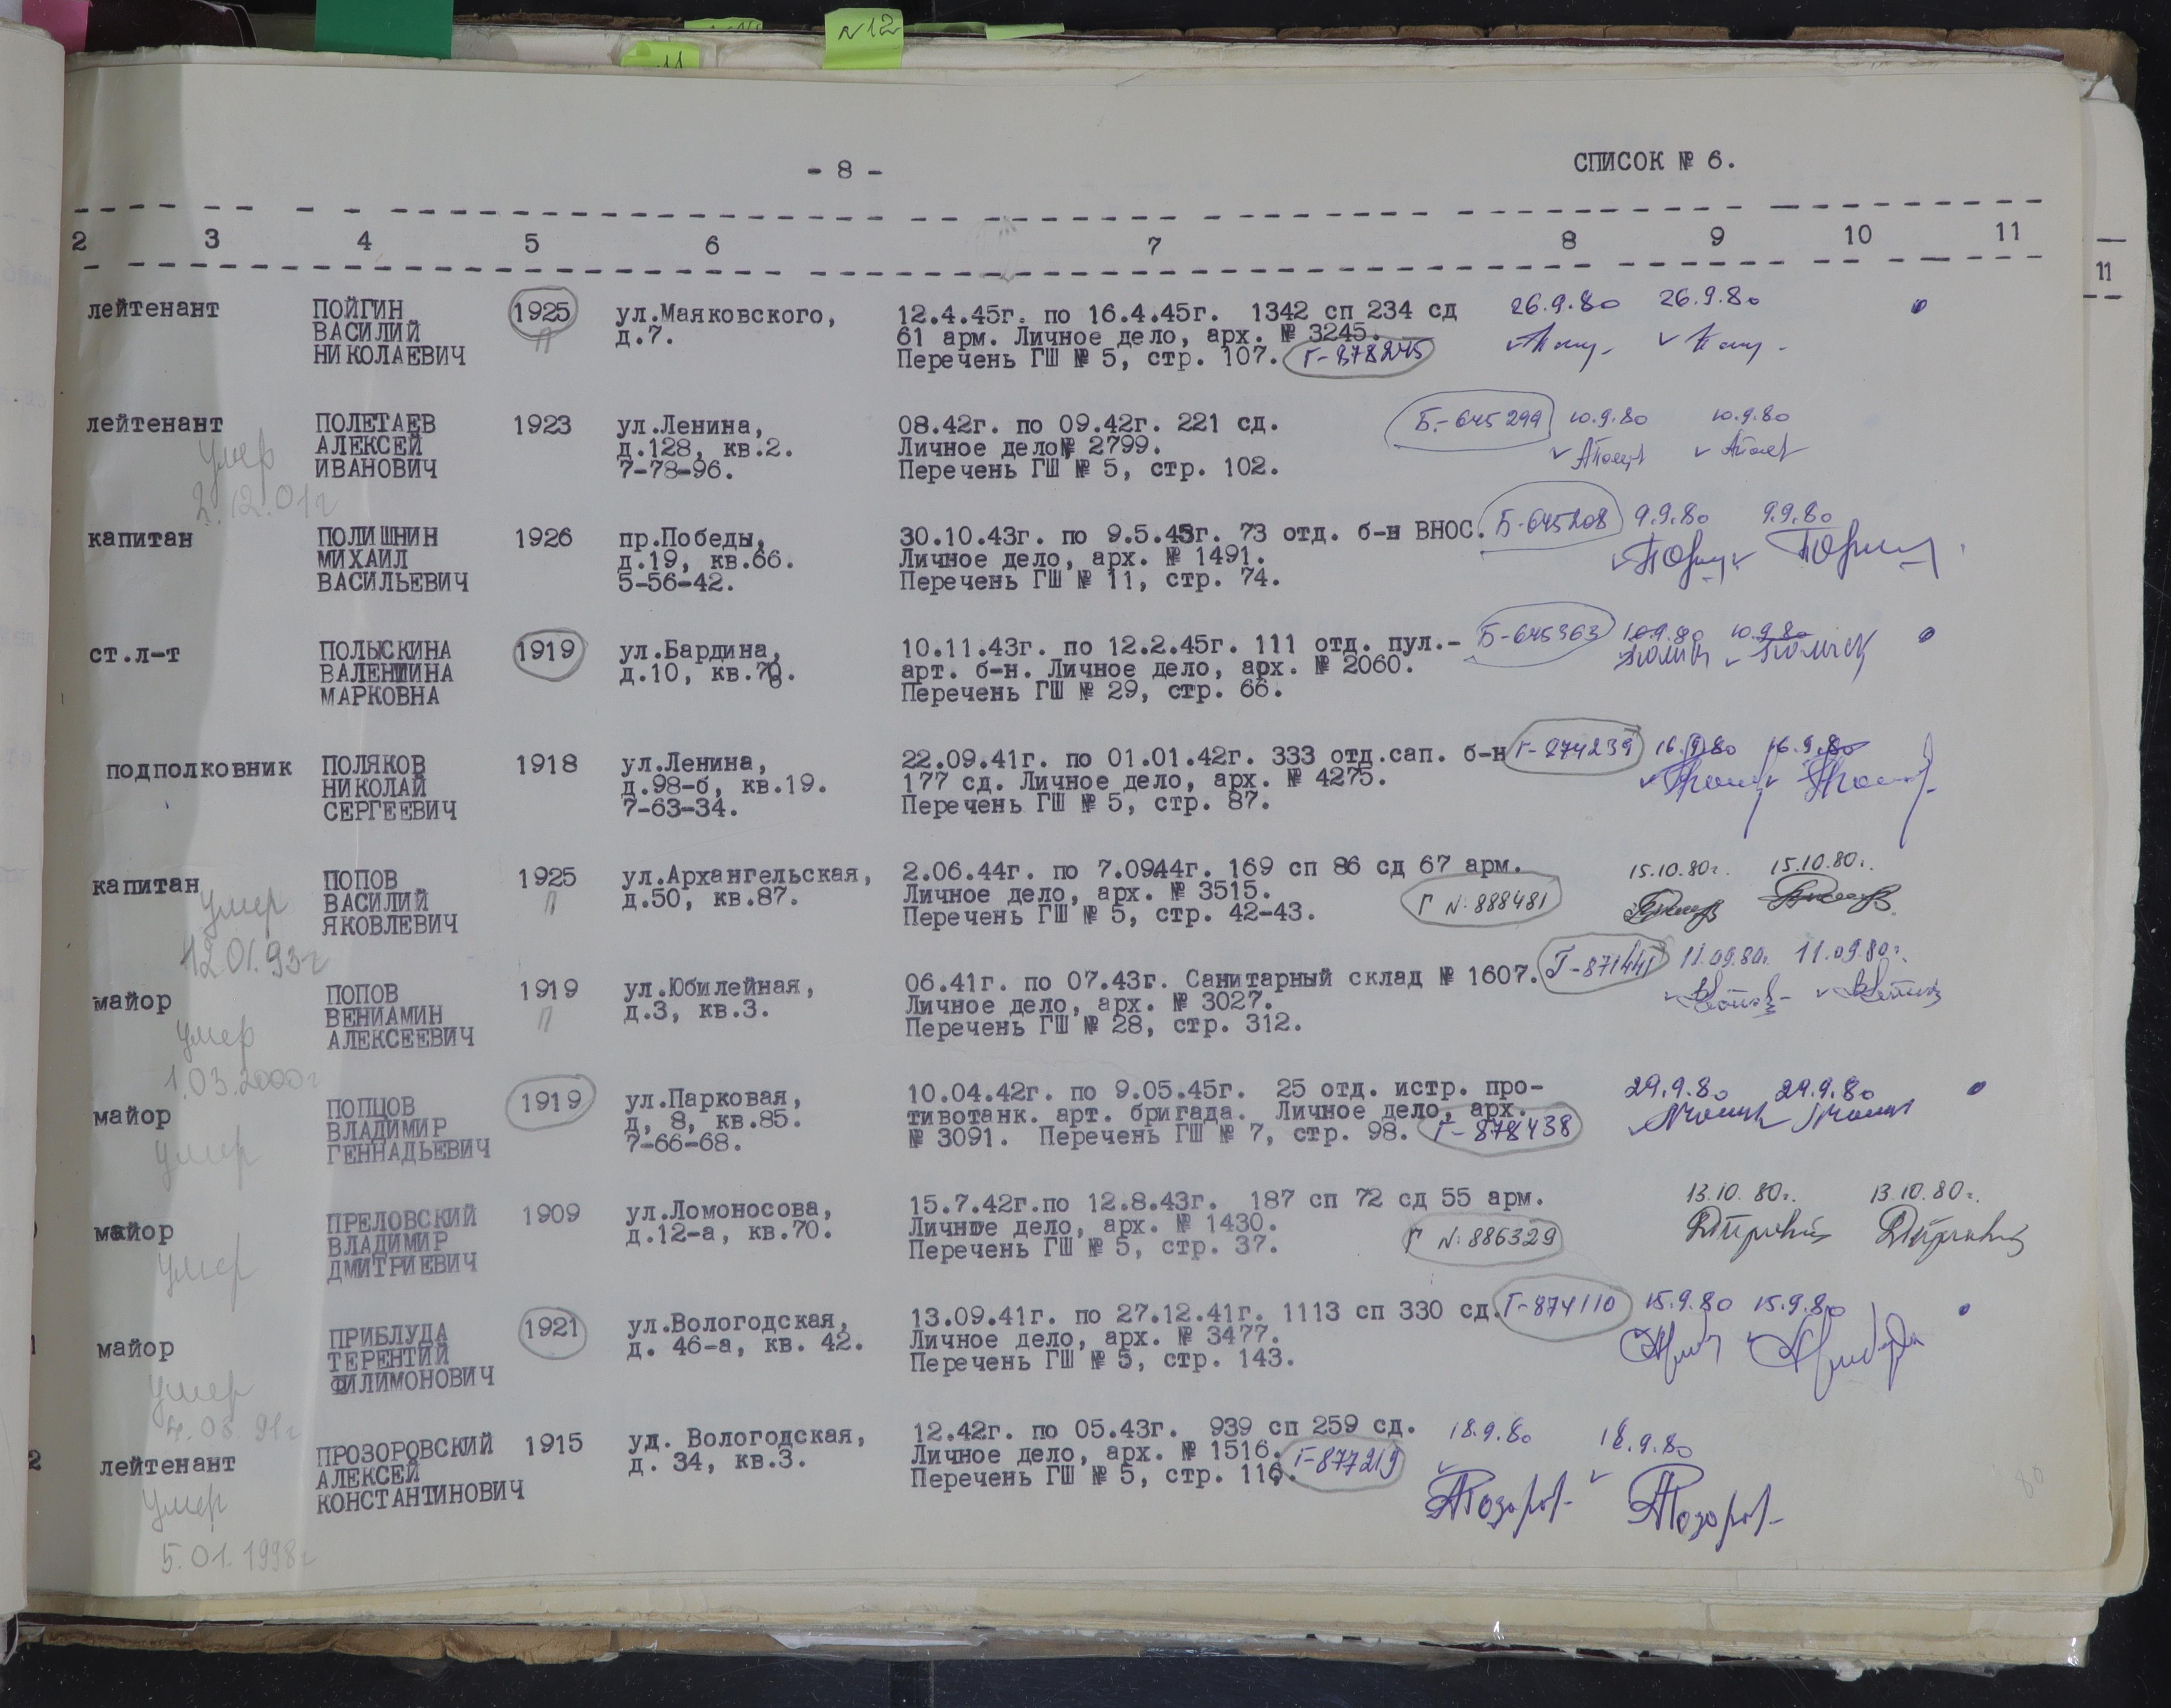 N12
11
- 8 -
СПИСОК № 6.
2 3 4 5 6 7 8 9 10 11
11
лейтенант ПОЙГИН 1925 ул.Маяковского, 12.4.45г. по 16.4.45г. 1342 сп 234 сд 26.9.80 26.9.80
ВАСИЛИЙ П д.7. 61 арм. Личное дело, арх. № 3245.
НИКОЛАЕВИЧ Перечень ГШ № 5, стр. 107. Г-878245
лейтенант ПОЛЕТАЕВ 1923 ул.Ленина, 08.42г. по 09.42г. 221 сд. Б-645299 10.9.80 10.9.80
умер АЛЕКСЕЙ д.128, кв.2. Личное дело№ 2799.
ИВАНОВИЧ 7-78-96. Перечень ГШ № 5, стр. 102.
2.12.01г
капитан ПОЛИШНИН 1926 пр.Победы, 30.10.43г. по 9.5.45г. 73 отд. б-н ВНОС. Б-645208 9.9.80 9.9.80
МИХАИЛ д.19, кв.66. Личное дело, арх. № 1491.
ВАСИЛЬЕВИЧ 5-56-42. Перечень ГШ № 11, стр. 74.
ст.л-т ПОЛЫСКИНА 1919 ул.Бардина, 10.11.43г. по 12.2.45г. 111 отд. пул.- Б-645363 10.9.80 10.9.80
ВАЛЕНТИНА д.10, кв.78. арт. б-н. Личное дело, арх. № 2060.
МАРКОВНА Перечень ГШ № 29, стр. 66.
подполковник ПОЛЯКОВ 1918 ул.Ленина, 22.09.41г. по 01.01.42г. 333 отд.сап. б-н Г-874239 16.9.80 16.9.80
НИКОЛАЙ д.98-б, кв.19. 177 сд. Личное дело, арх. № 4275.
СЕРГЕЕВИЧ 7-63-34. Перечень ГШ № 5, стр. 87.
капитан ПОПОВ 1925 ул.Архангельская, 2.06.44г. по 7.0944г. 169 сп 86 сд 67 арм. 15.10.80г. 15.10.80г.
умер ВАСИЛИЙ П д.50, кв.87. Личное дело, арх. № 3515. Г N: 888481
ЯКОВЛЕВИЧ Перечень ГШ № 5, стр. 42-43.
12.01.93г
майор ПОПОВ 1919 ул.Юбилейная, 06.41г. по 07.43г. Санитарный склад № 1607. Г-871441 11.09.80г. 11.09.80г.
ВЕНИАМИН П д.3, кв.3. Личное дело, арх. № 3027.
умер АЛЕКСЕЕВИЧ Перечень ГШ № 28, стр. 312.
1.03.2000г
майор ПОПЦОВ 1919 ул.Парковая, 10.04.42г. по 9.05.45г. 25 отд. истр. про- 29.9.80 29.9.80
ВЛАДИМИР д, 8, кв.85. тивотанк. арт. бригада. Личное дело, арх.
умер ГЕННАДЬЕВИЧ 7-66-68. № 3091. Перечень ГШ № 7, стр. 98. Г-878438
майор ПРЕЛОВСКИЙ 1909 ул.Ломоносова, 15.7.42г.по 12.8.43г. 187 сп 72 сд 55 арм. 13.10.80г. 13.10.80г.
ВЛАДИМИР д.12-а, кв.70. Личное дело, арх. № 1430.
умер ДМИТРИЕВИЧ Перечень ГШ № 5, стр. 37. Г N: 886329
майор ПРИБЛУДА 1921 ул.Вологодская, 13.09.41г. по 27.12.41г. 1113 сп 330 сд. Г-874110 15.9.80 15.9.80
ТЕРЕНТИЙ д. 46-а, кв. 42. Личное дело, арх. № 3477.
умер ФИЛИМОНОВИЧ Перечень ГШ № 5, стр. 143.
4.03.91г
2 лейтенант ПРОЗОРОВСКИЙ 1915 уд. Вологодская, 12.42г. по 05.43г. 939 сп 259 сд. 18.9.80 18.9.80
АЛЕКСЕЙ д. 34, кв.3. Личное дело, арх. № 1516. Г-877219
умер КОНСТАНТИНОВИЧ Перечень ГШ № 5, стр. 116.
5.01.1998г
80